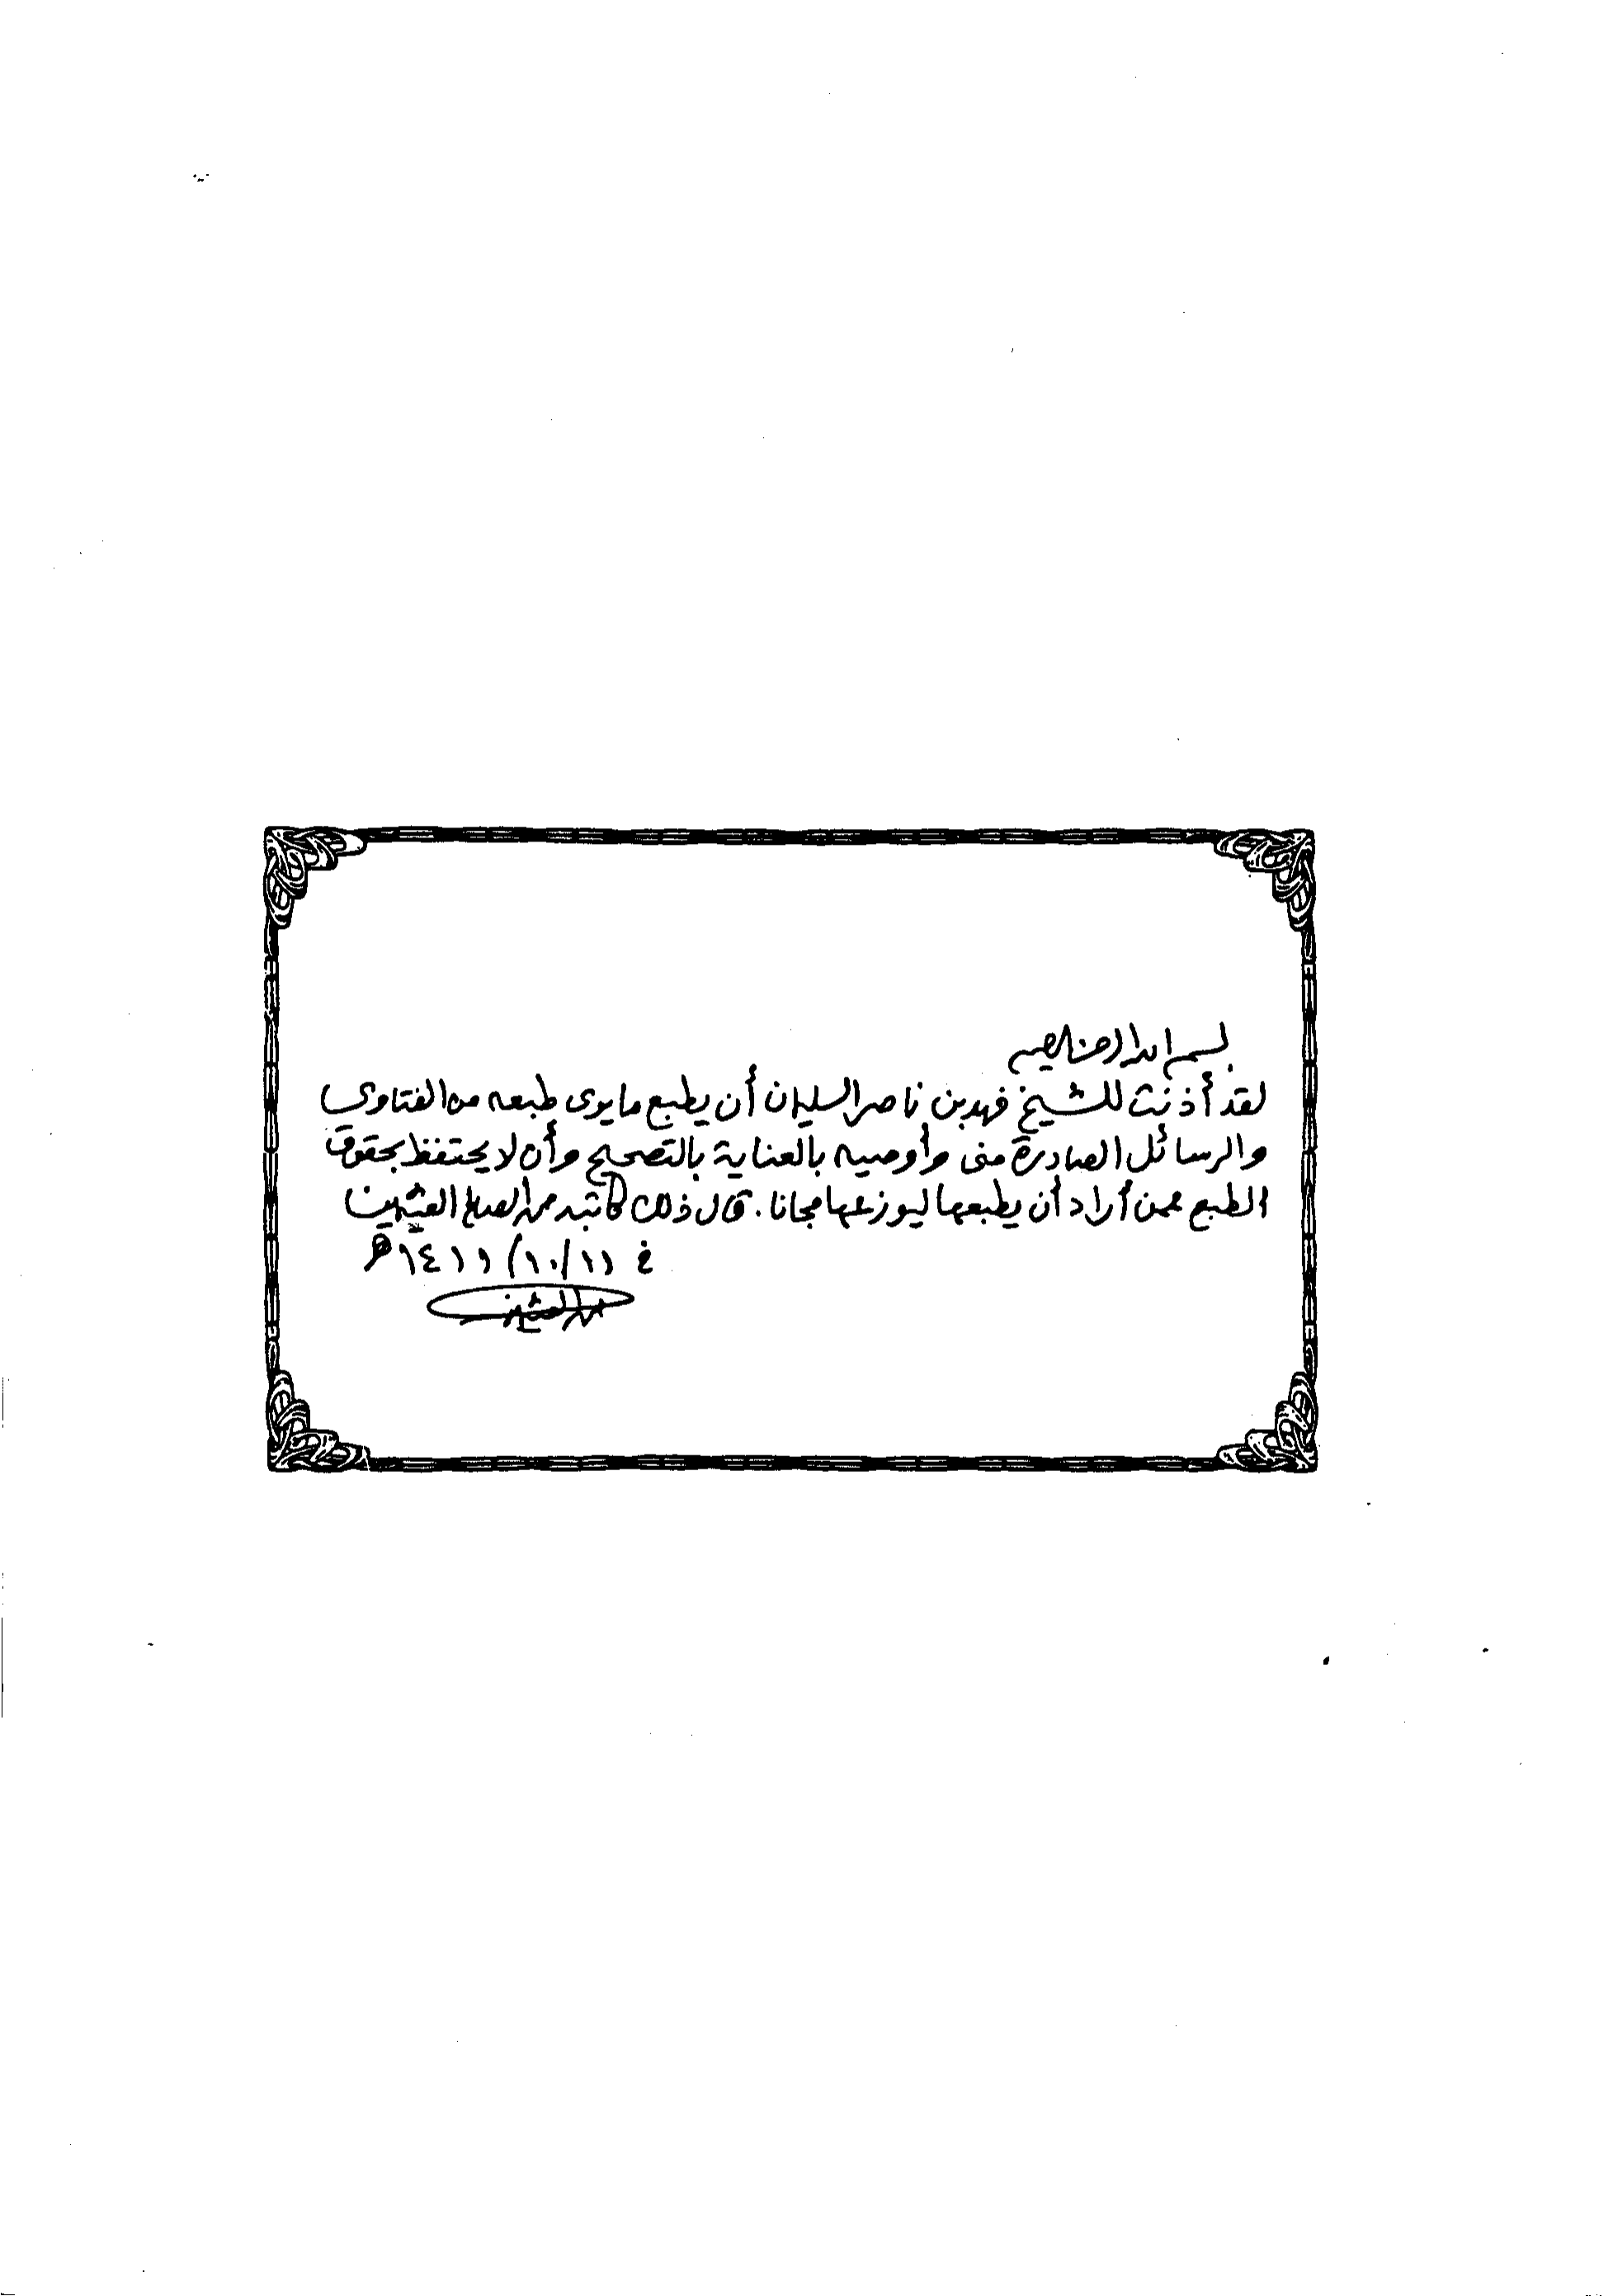 بسم الله الرحمن الرحيم
لقد أذنت للشيخ فهد بن ناصر السليمان أن يطبع ما يرى طبعه من الفتاوى
والرسائل الصادرة منى وأوصيه بالعناية بالتصحيح وأن لا يحتفظ بحقوق
الطبع عمن أراد أن يطبعها ليوزعها مجانا. قال ذلك كاتبه محمد الصالح العثيمين
في ١١/ ١٠/ ١٤١١هـ
محمد العثيمين